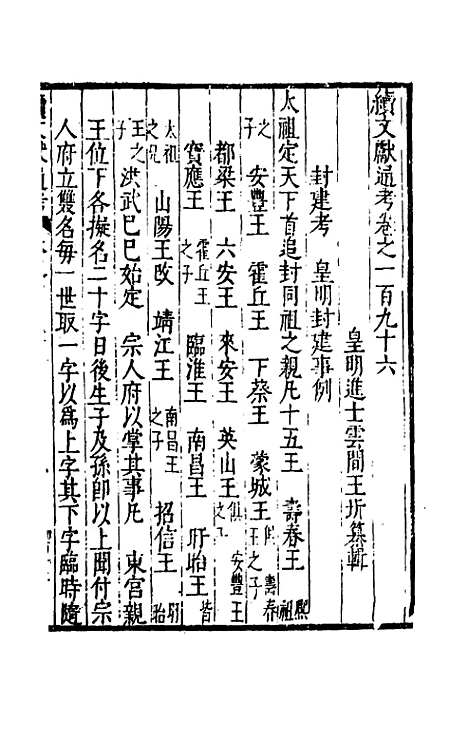 續文獻通考卷之一百九十六
皇明進士雲間王圻纂輯
封建考 皇明封建事例
太祖定天下首追封同祖之親凡十五王 壽春王 熙祖
之子 安豐王 霍丘王 下蔡王 蒙城王 俱壽春王之子
都梁王 六安王 來安王 英山王 俱安豐王之子
寶應王 霍丘王之子 臨淮王 南昌王 盱眙王 皆
太祖之兄 山陽王改 靖江王 南昌王之子 招信王 盱眙
王之子 洪武已巳始定 宗人府以掌其事凡 東宮親
王位下各擬名二十字日後生子及孫卽以上聞付宗
人府立雙名每一世取一字以爲上字其下字臨時隨